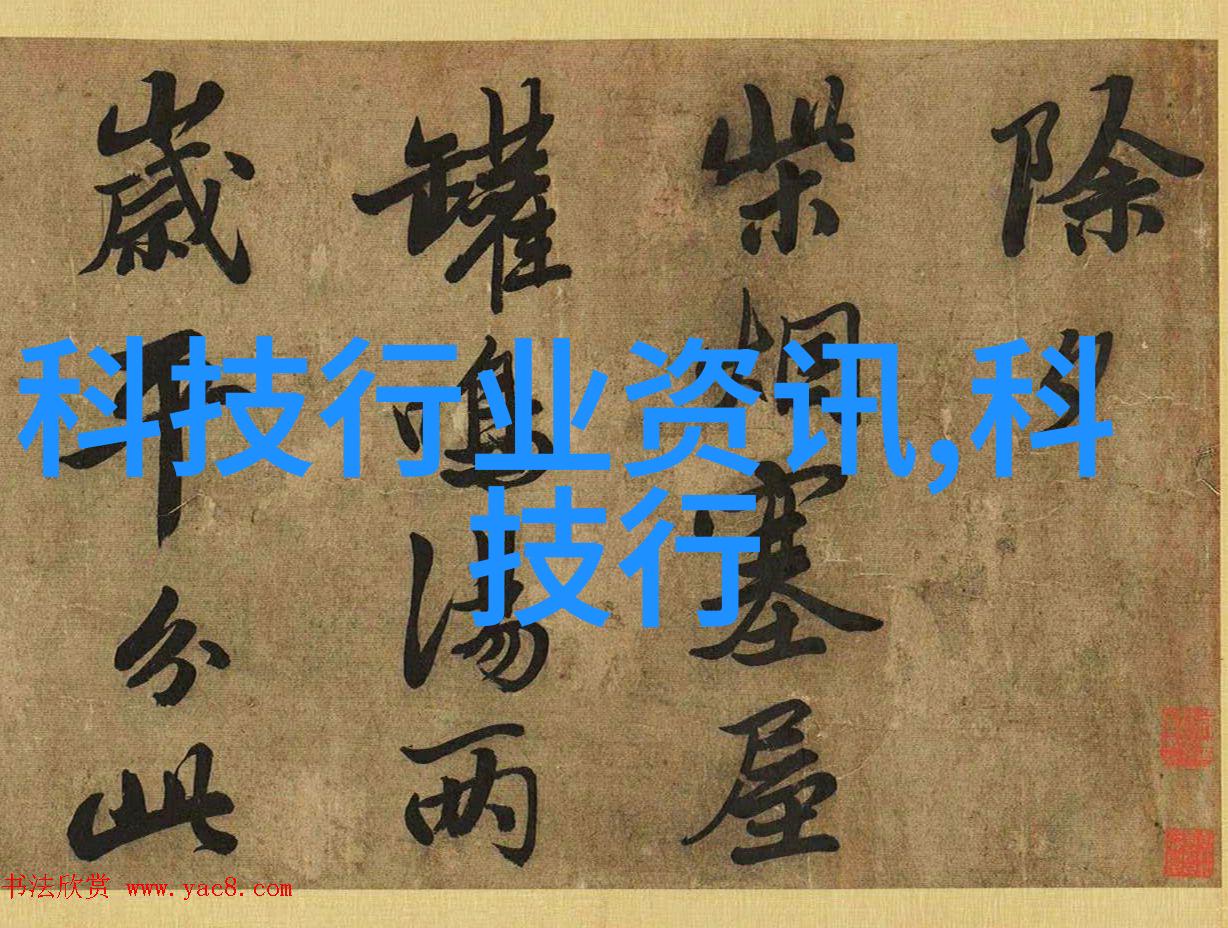 除夕
柴烟塞屋
罐鳴湯兩
歲平分此
科技行业资讯,科
技行
书法欣赏 www.yac8.com